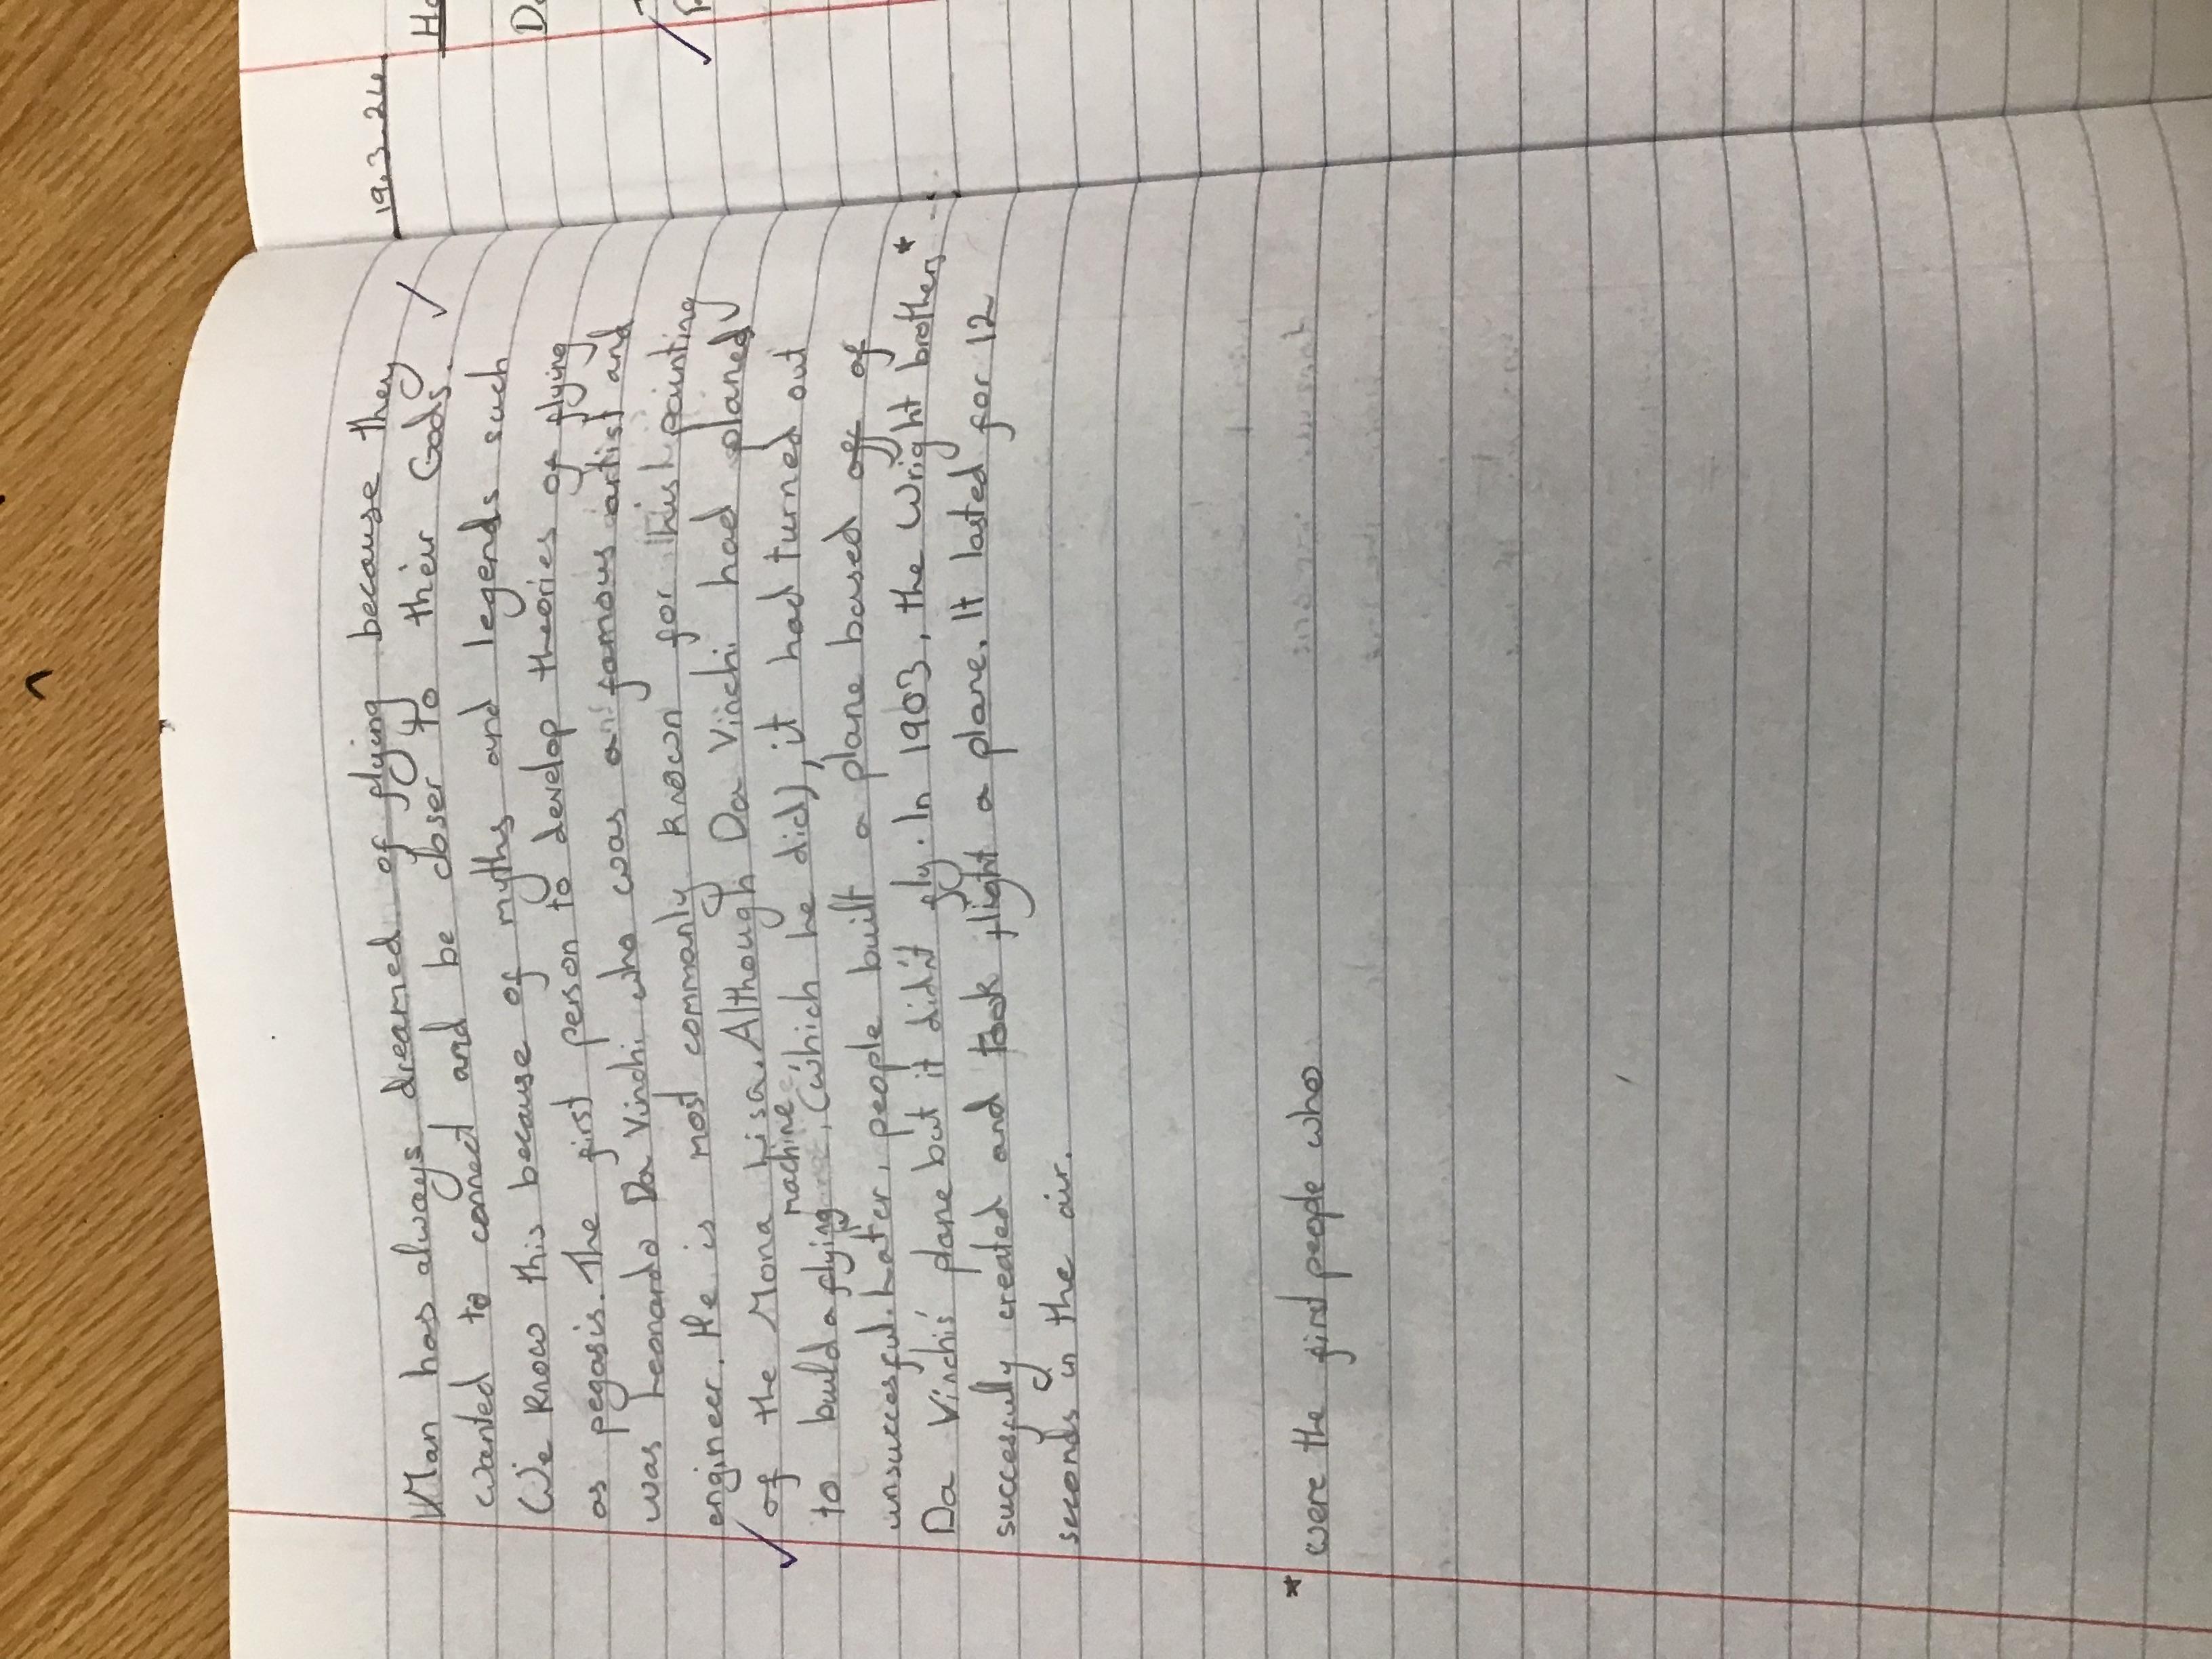 Man has always dreamed of flying because they
wanted to connect and be closer to their Gods.
We know this because of myths and legends such
as pegasis. The first person to develop theories of flying
was Leonardo Da Vinchi who was a famous artist and
engineer. He is most commonly known for his painting
of the Mona Lisa. Although Da Vinchi had planed
machine
to build a flying, (which he did), it had turned out
unsuccessful. Later, people built a plane based off of
Da Vinchis' plane but it didn't fly. In 1903, the Wright brothers *
successfully created and took flight a plane. It lasted for 12
seconds in the air.
* were the first people who
19.3.24